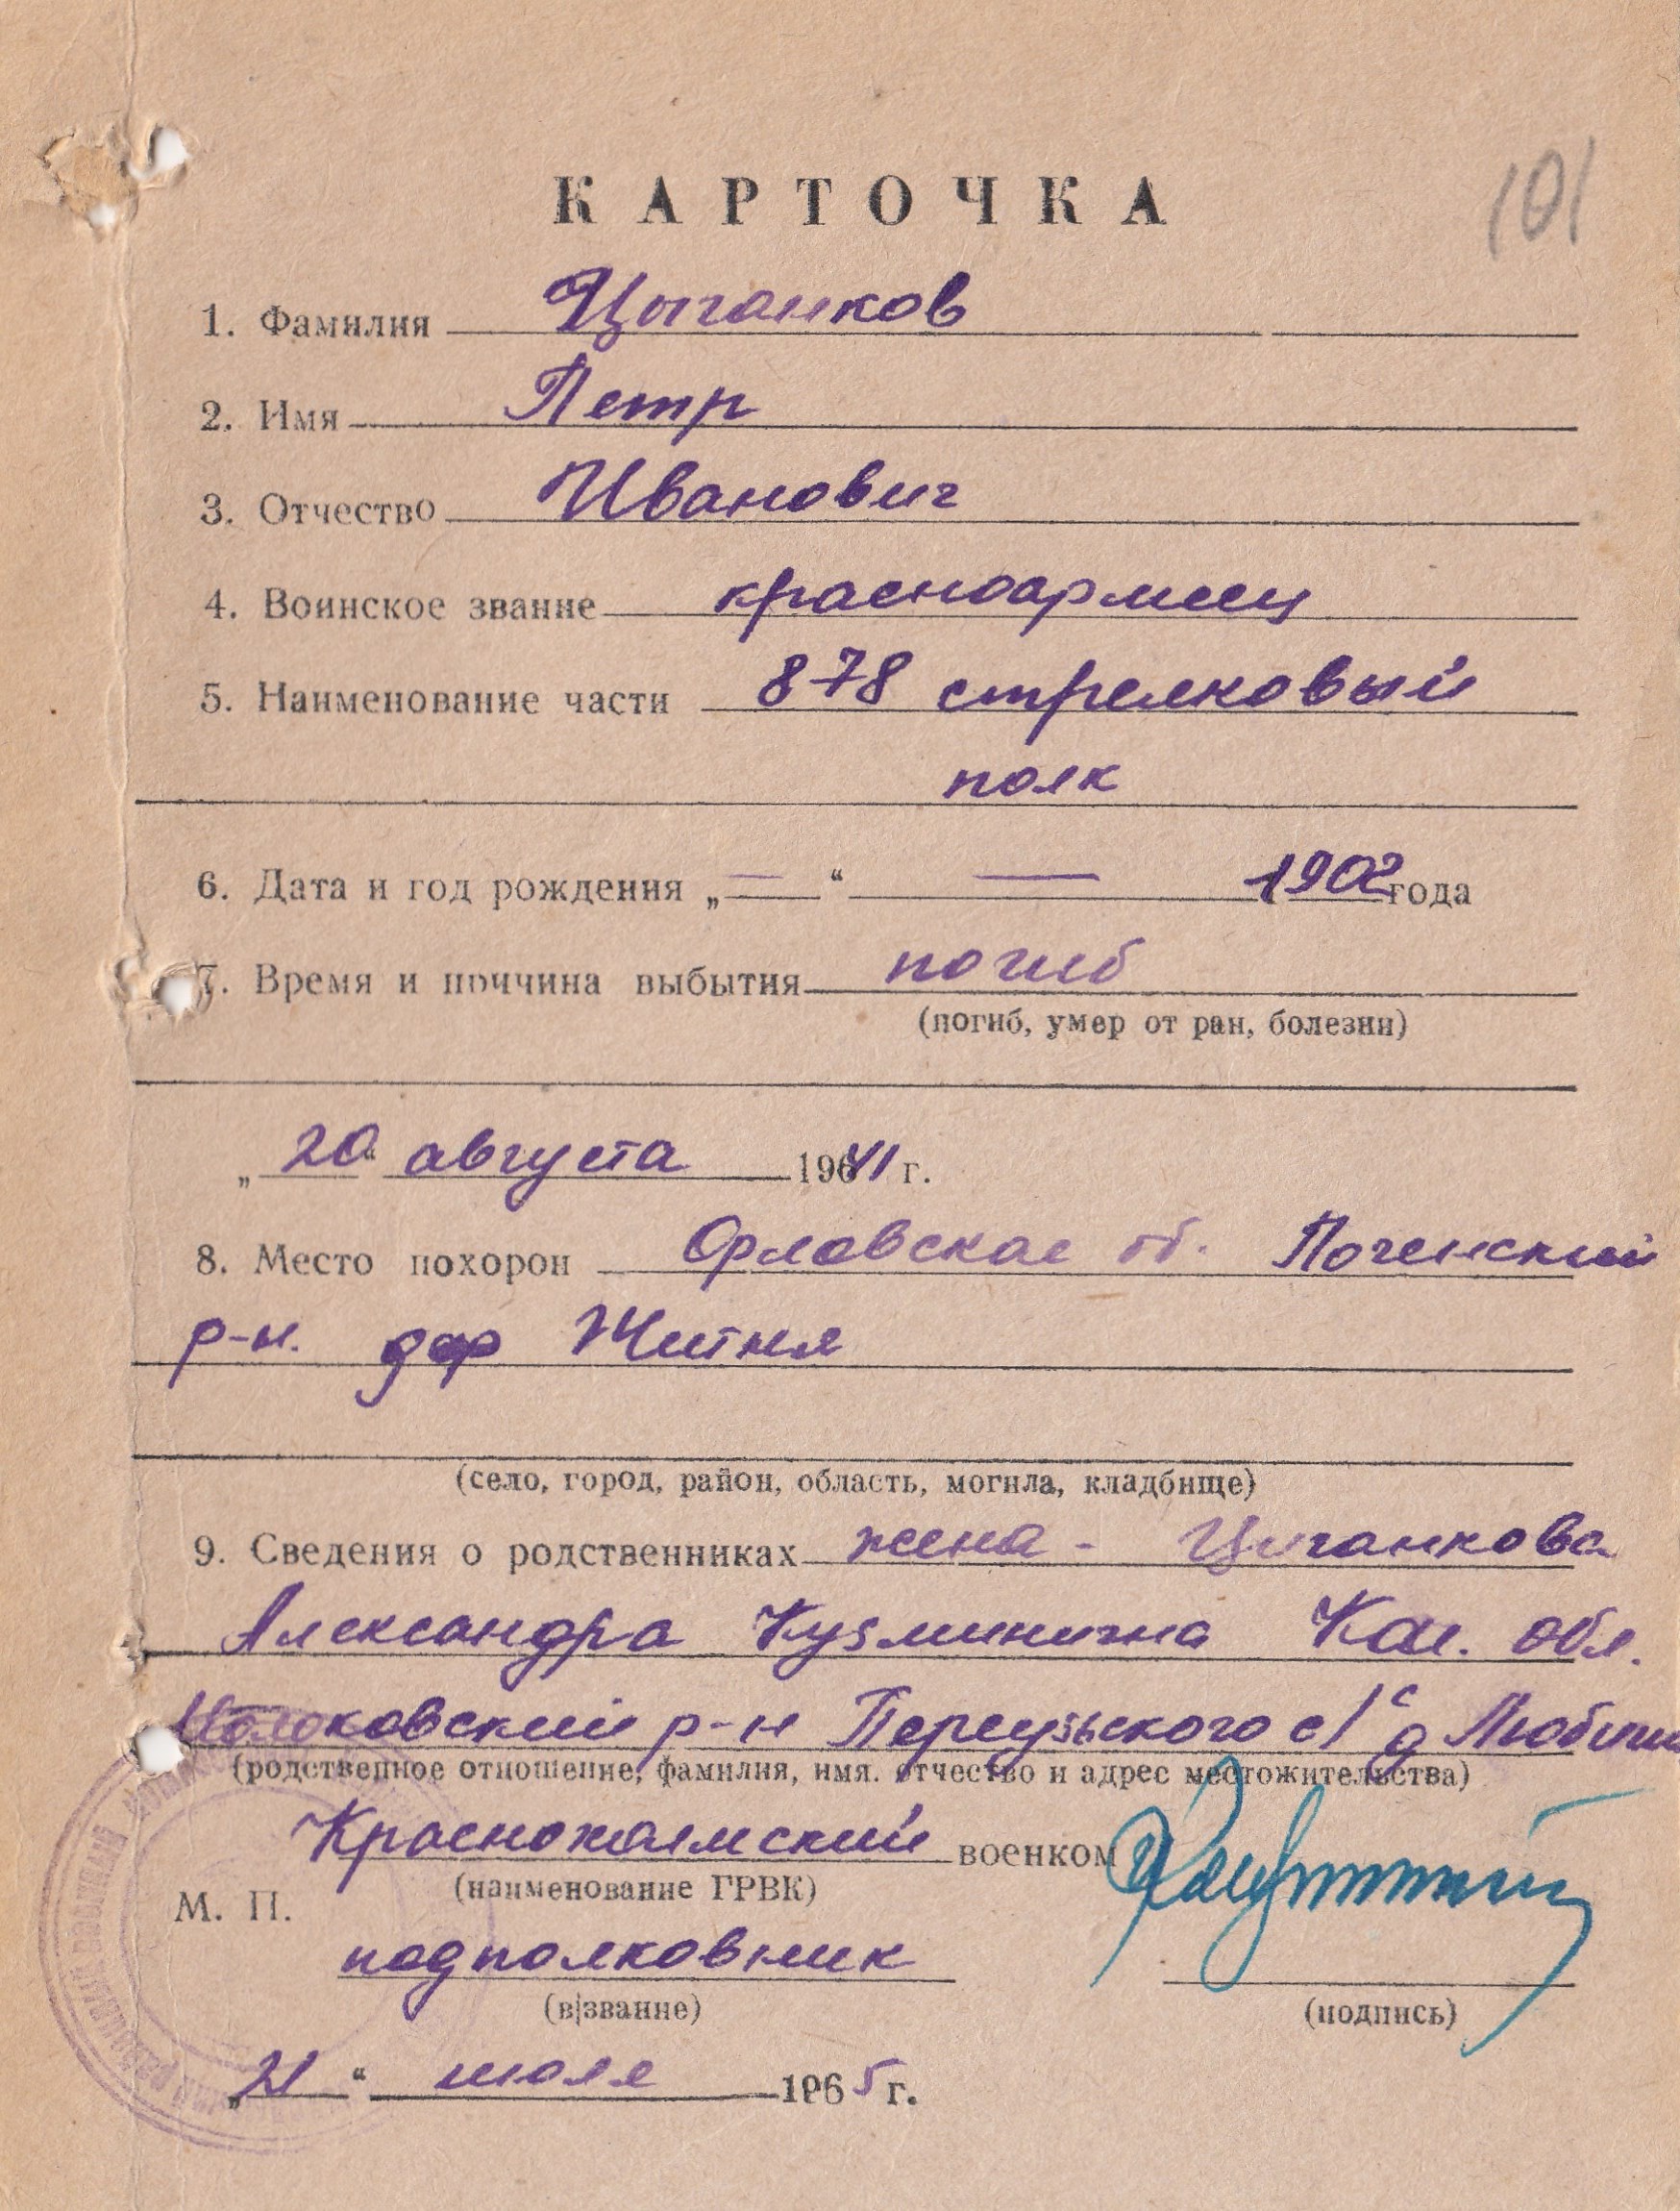 101
КАРТОЧКА
1. Фамилия Цыганков
2. Имя Петр
3. Отчество Иванович
4. Воинское звание красноармеец
5. Наименование части 878 стрелковый
полк
6. Дата и год рождения „—“ — 1902 года
7. Время и причина выбытия погиб
(погиб, умер от ран, болезни)
„20“ августа 1941 г.
8. Место похорон Орловская об. Поченский
р-н. дер Житня
(село, город, район, область, могила, кладбище)
9. Сведения о родственниках жена - Цыганкова
Александра Кузминична Кал. обл.
Молоковский р-н Переузьского с/с д Любини
(родственное отношение, фамилия, имя. отчество и адрес местожительства)
Краснохолмский военком
(наименование ГРВК)
М. П.
подполковник
(в|звание) (подпись)
„21“ июля 1965 г.